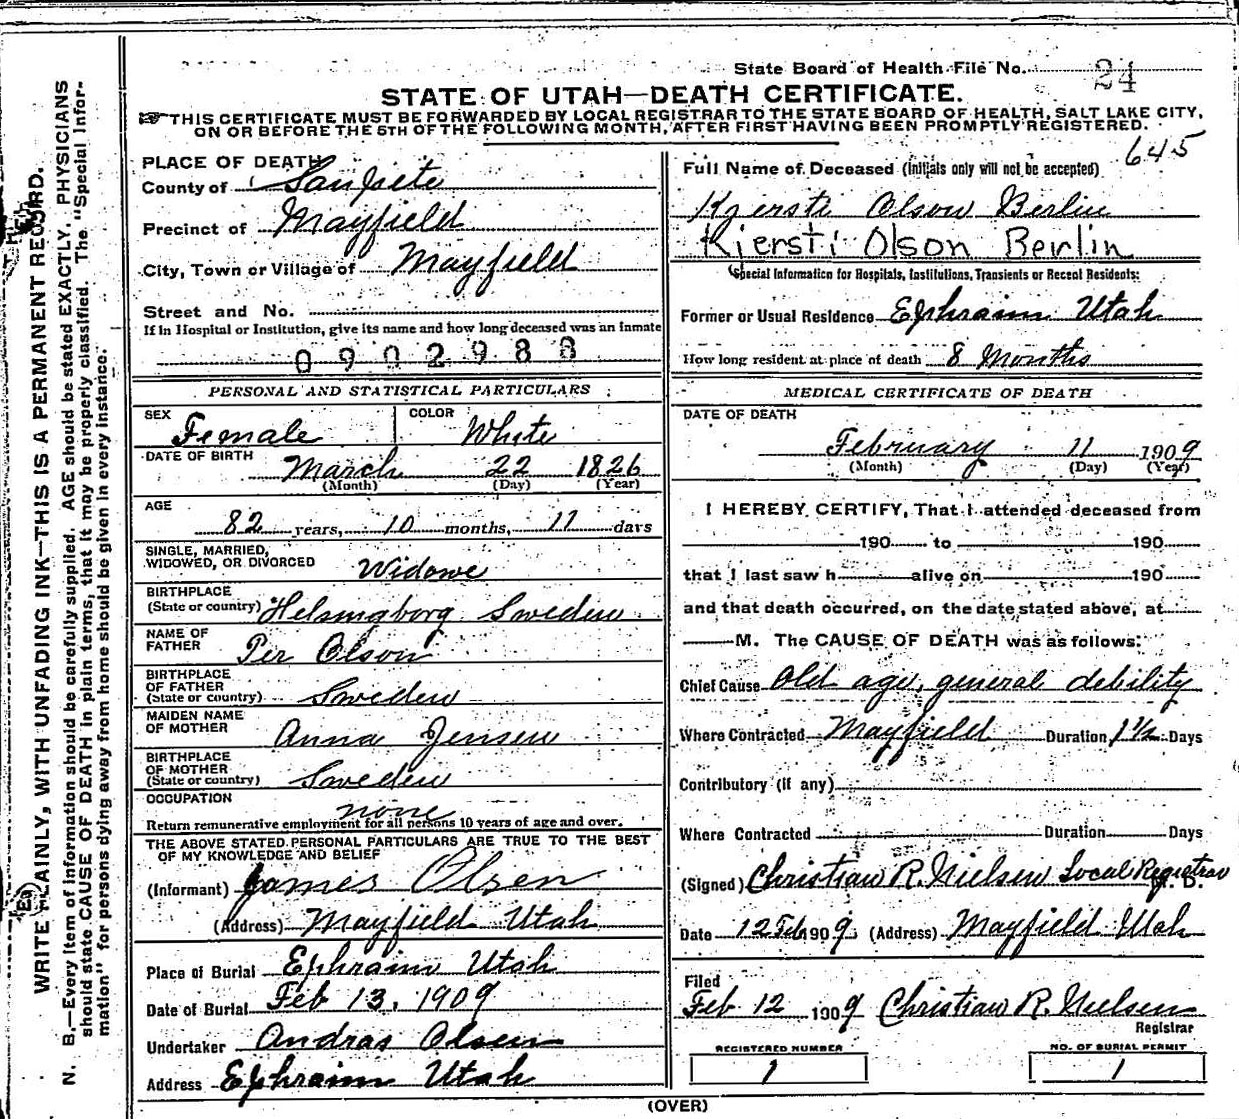 State Board of Health File No. 24
STATE OF UTAH—DEATH CERTIFICATE.
THIS CERTIFICATE MUST BE FORWARDED BY LOCAL REGISTRAR TO THE STATE BOARD OF HEALTH, SALT LAKE CITY,
ON OR BEFORE THE 5TH OF THE FOLLOWING MONTH, AFTER FIRST HAVING BEEN PROMPTLY REGISTERED.
645
WRITE PLAINLY, WITH UNFADING INK—THIS IS A PERMANENT RECORD.
N. B.—Every item of information should be carefully supplied. AGE should be stated EXACTLY. PHYSICIANS
should state CAUSE OF DEATH in plain terms, that it may be properly classified. The "Special Infor-
mation" for persons dying away from home should be given in every instance.
PLACE OF DEATH
County of Sanpete
Precinct of Mayfield
City, Town or Village of Mayfield
Street and No.
If in Hospital or Institution, give its name and how long deceased was an inmate
0902988
PERSONAL AND STATISTICAL PARTICULARS
SEX Female COLOR White
DATE OF BIRTH March 22 1826
(Month) (Day) (Year)
AGE
82 years, 10 months, 11 days
SINGLE, MARRIED,
WIDOWED, OR DIVORCED Widowe
BIRTHPLACE
(State or country) Helsingborg Sweden
NAME OF
FATHER Per Olson
BIRTHPLACE
OF FATHER
(State or country) Sweden
MAIDEN NAME
OF MOTHER Anna Jensen
BIRTHPLACE
OF MOTHER
(State or country) Sweden
OCCUPATION none
Return remunerative employment for all persons 10 years of age and over.
THE ABOVE STATED PERSONAL PARTICULARS ARE TRUE TO THE BEST
OF MY KNOWLEDGE AND BELIEF
(Informant) James Olsen
(Address) Mayfield Utah
Place of Burial Ephraim Utah
Date of Burial Feb 13, 1909
Undertaker Andras Olsen
Address Ephraim Utah
Full Name of Deceased (Initials only will not be accepted)
Kjersti Olson Berlin
Kjersti Olson Berlin
Special Information for Hospitals, Institutions, Transients or Recent Residents:
Former or Usual Residence Ephraim Utah
How long resident at place of death 8 Months
MEDICAL CERTIFICATE OF DEATH
DATE OF DEATH
February 11 1909
(Month) (Day) (Year)
I HEREBY CERTIFY, That I attended deceased from
190 to 190
that I last saw h alive on 190
and that death occurred, on the date stated above, at
M. The CAUSE OF DEATH was as follows:
Chief Cause Old age, general debility
Where Contracted Mayfield Duration 1 1/2 Days
Contributory (if any)
Where Contracted Duration Days
(Signed) Christian R. Nielsen Local Registrar M. D.
Date 12 Feb 1909 (Address) Mayfield Utah
Filed
Feb 12 1909 Christian R. Nielsen
Registrar
REGISTERED NUMBER NO. OF BURIAL PERMIT
1 1
(OVER)